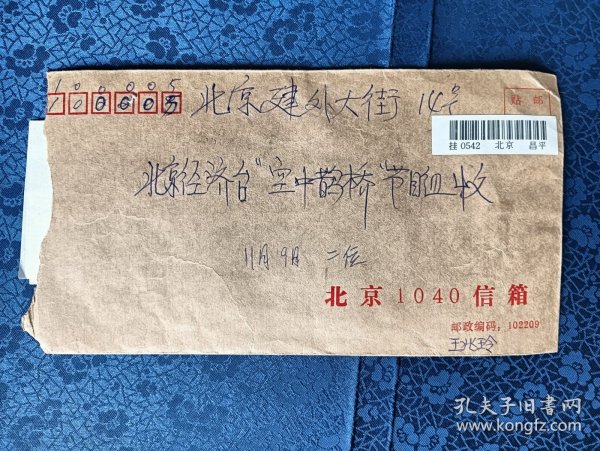 100005
100605
北京建外大街14号
贴 邮
挂0542 北京 昌平
北京经济台"空中鹊桥"节目 收
11月9日 二位
北京1040信箱
邮政编码:102209
孔夫子旧书网
www.kongfz.com